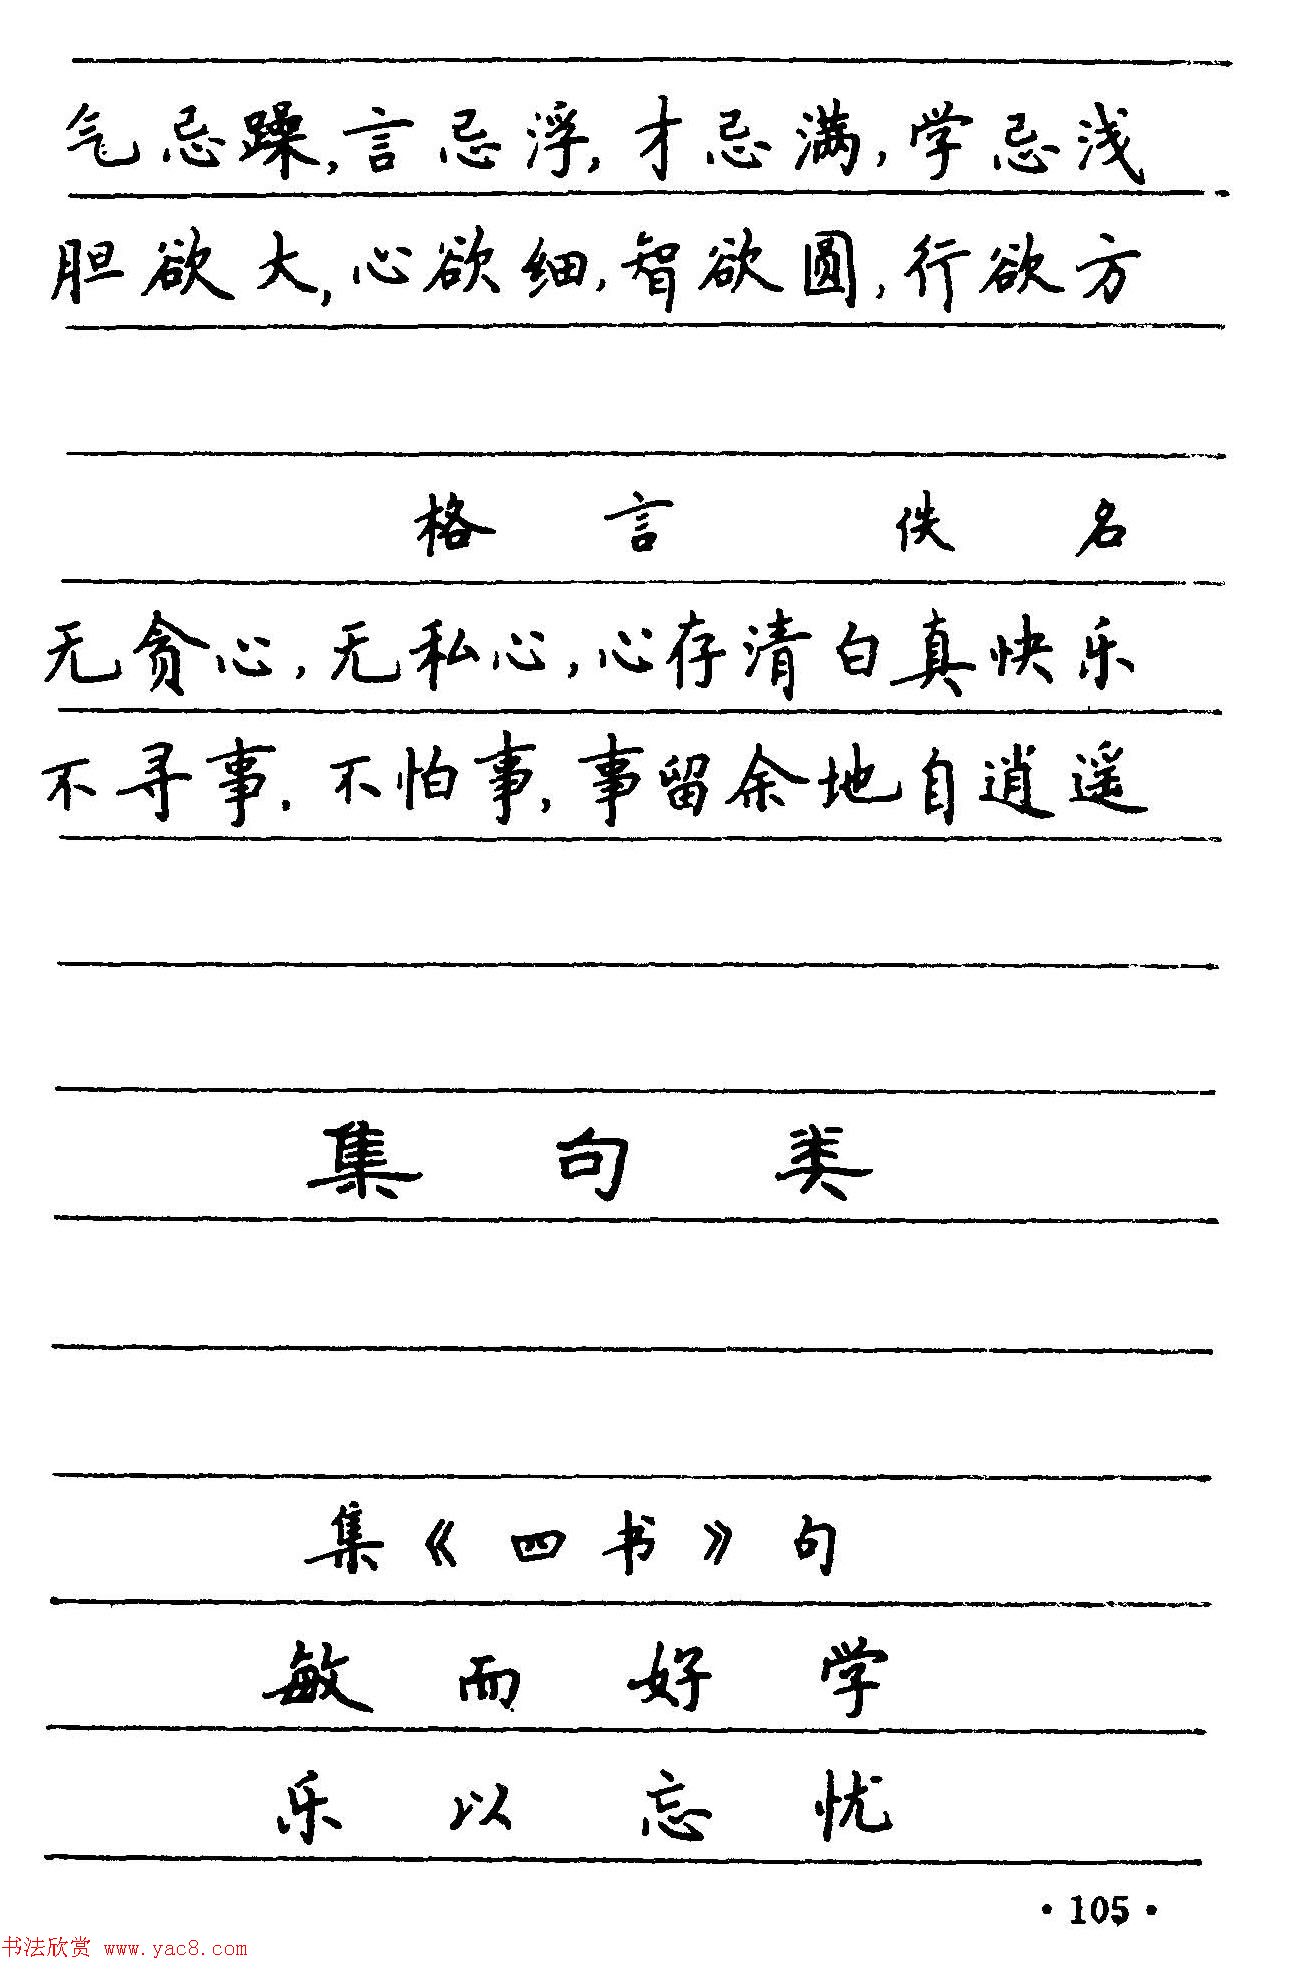 气忌躁，言忌浮，才忌满，学忌浅
胆欲大，心欲细，智欲圆，行欲方
格言 佚名
无贪心，无私心，心存清白真快乐
不寻事，不怕事，事留余地自逍遥
集句类
集《四书》句
敏而好学
乐以忘忧
·105·
书法欣赏 www.yac8.com